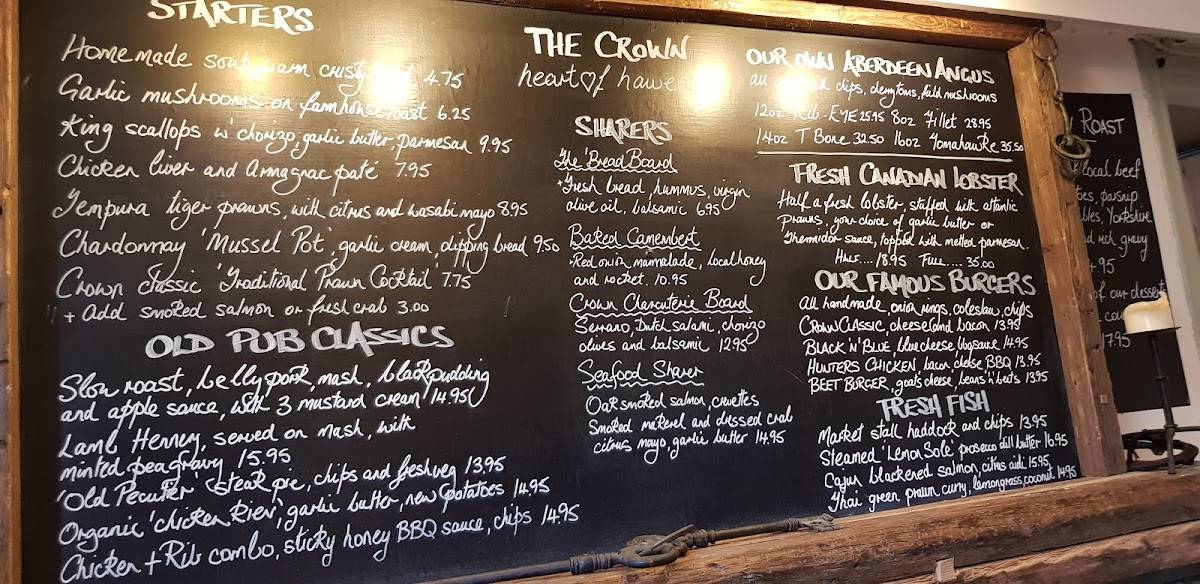 STARTERS
Home made soup, warm crusty 4.75
Garlic mushrooms on farmhouse toast 6.25
King scallops w' chorizo, garlic butter, parmesan 9.95
Chicken liver and Armagnac paté 7.95
Tempura tiger prawns, with citrus and wasabi mayo 8.95
Chardonnay 'Mussel Pot', garlic cream, dipping bread 9.50
Crown Classic 'Traditional Prawn Cocktail' 7.75
+ Add smoked salmon or fresh crab 3.00
OLD PUB CLASSICS
Slow roast, belly pork, mash, black pudding
and apple sauce, with 3 mustard cream 14.95
Lamb Henney, served on mash, with
minted pea gravy 15.95
'Old Peculier' steak pie, chips and fresh veg 13.95
Organic 'chicken Kiev', garlic butter, new potatoes 14.95
Chicken + Rib combo, sticky honey BBQ sauce, chips 14.95
THE CROWN
heart of hawes
SHARERS
The 'Bread Board
+Fresh bread, hummus, virgin
olive oil, balsamic 6.95
Baked Camembert
+Red onion marmalade, local honey
and rocket. 10.95
Crown Charcuterie Board
Serrano, Dutch salami, chorizo
olives and balsamic 12.95
Seafood Sharer
Oak smoked salmon, crevettes
Smoked makerel and dressed crab
citrus mayo, garlic butter 14.95
OUR OWN ABERDEEN ANGUS
all chips, derytoms, field mushrooms
12oz Rib-EYE 25.95 8oz Fillet 28.95
14oz T Bone 32.50 16oz Tomahawke 35.50
FRESH CANADIAN LOBSTER
Half a fresh lobster, stuffed with atlantic
Prawns, your choice of garlic butter or
Thermidor sauce, topped with melted parmesan.
HALF.... 18.95 FULL.... 35.00
OUR FAMOUS BURGERS
All handmade, onion rings, coleslaw, chips
CROWN CLASSIC, cheese and bacon 13.95
BLACK 'N' BLUE, blue cheese, bbq sauce 14.95
HUNTERS CHICKEN, bacon, cheese, BBQ 13.95
BEET BURGER, goats cheese, beans 'n' beets 13.95
FRESH FISH
Market stall haddock and chips 13.95
Steamed 'Lemon Sole' prosecco dill butter 16.95
Cajun blackened salmon, citrus aioli 15.95
Thai green prawn curry, lemongrass, coconut 14.95
ROAST
local beef
parsnip
Yorkshire
rich gravy
of our desserts
17.95